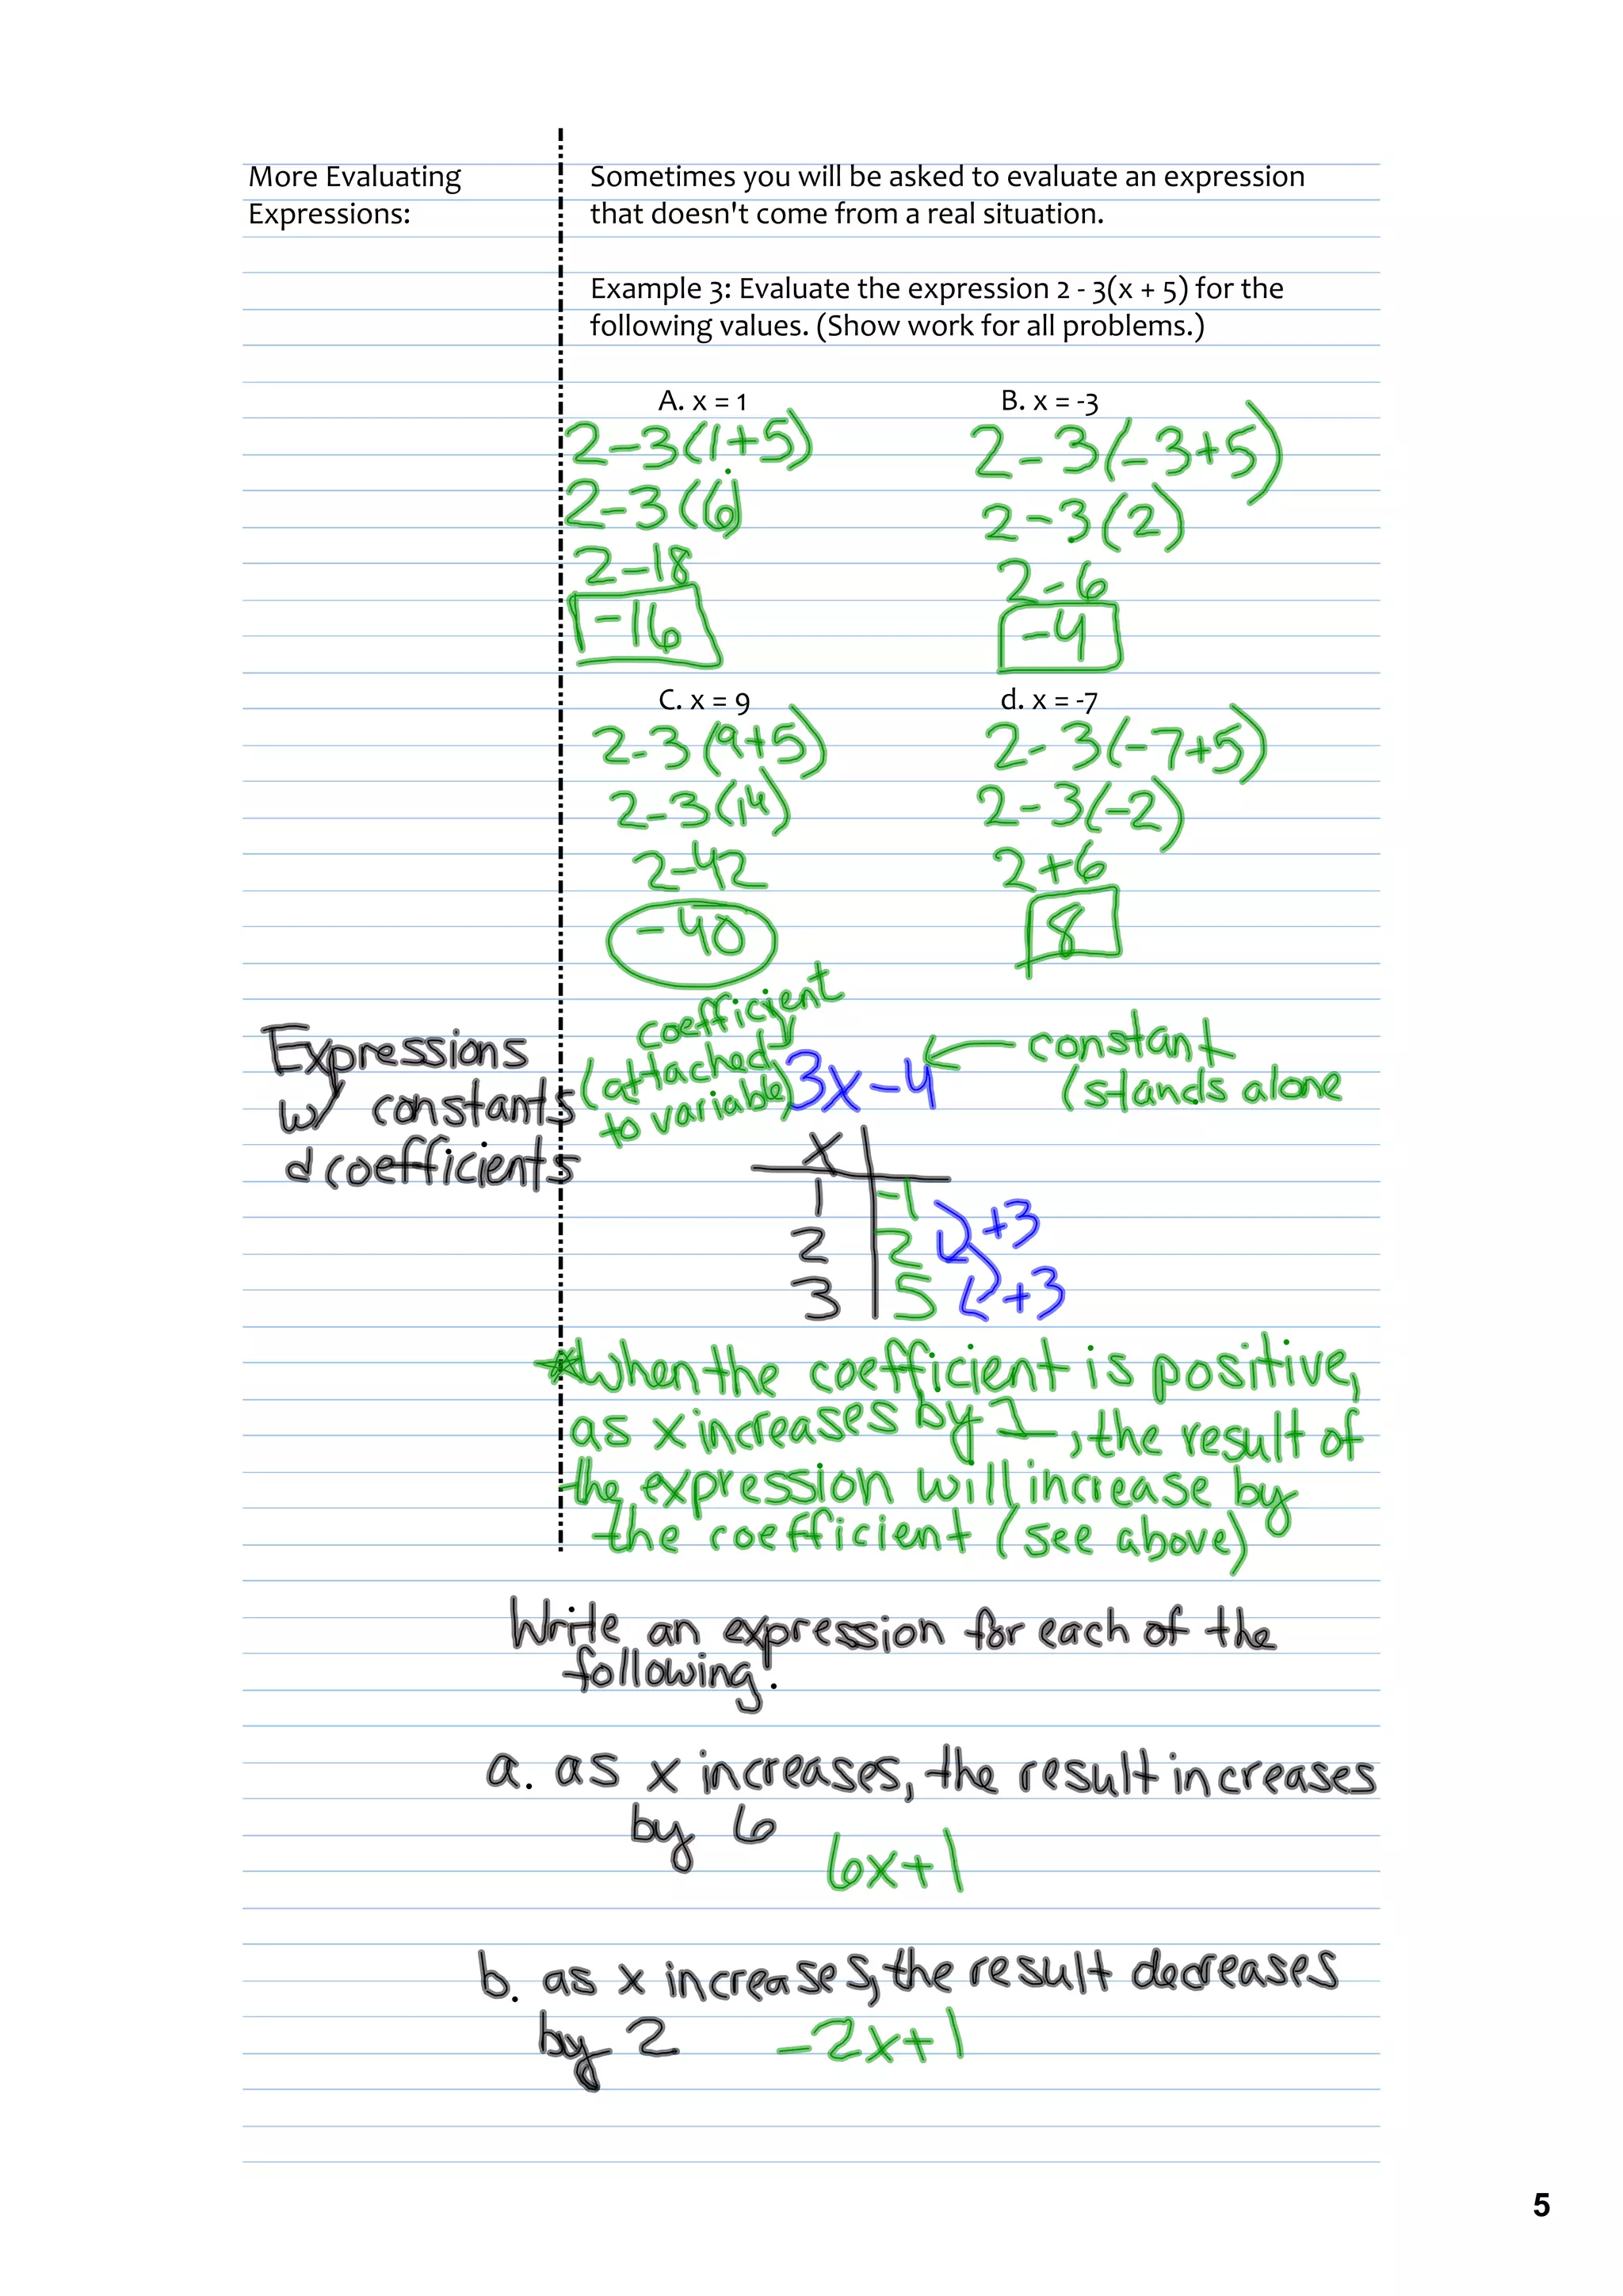 More Evaluating
Expressions:
Sometimes you will be asked to evaluate an expression
that doesn't come from a real situation.
Example 3: Evaluate the expression 2 - 3(x + 5) for the
following values. (Show work for all problems.)
A. x = 1
2-3(1+5)
2-3(6)
2-18
-16
B. x = -3
2-3(-3+5)
2-3(2)
2-6
-4
C. x = 9
2-3(9+5)
2-3(14)
2-42
-40
d. x = -7
2-3(-7+5)
2-3(-2)
2+6
8
Expressions
w/ constants
& coefficients
coefficient
(attached
to variable)
3x-4
constant
(stands alone
x
1 -1
2 2
3 5
+3
+3
☆When the coefficient is positive,
as x increases by 1, the result of
the expression will increase by
the coefficient (see above)
Write an expression for each of the
following.
a. as x increases, the result increases
by 6
6x+1
b. as x increases, the result decreases
by 2
-2x+1
5